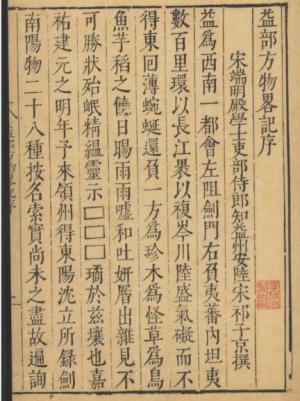 益部方物畧記序
宋端明殿學士吏部侍郎知益州安陸宋祁子京撰
益爲西南一都會左阻劍門右負夷蕃内坦夷
數百里環以長江褁以複岑川陸盛氣礙而不
得東回薄蜿蜒還負一方爲珍木爲怪草爲鳥
魚芋稻之饒日暘雨雨噓和吐妍層出雜見不
可勝狀殆岷精蘊靈示□□□璚於兹壤也嘉
祐建元之明年予來領州得東陽沈立所録劍
南陽物二十八種按名索實尚未之盡故遍詢